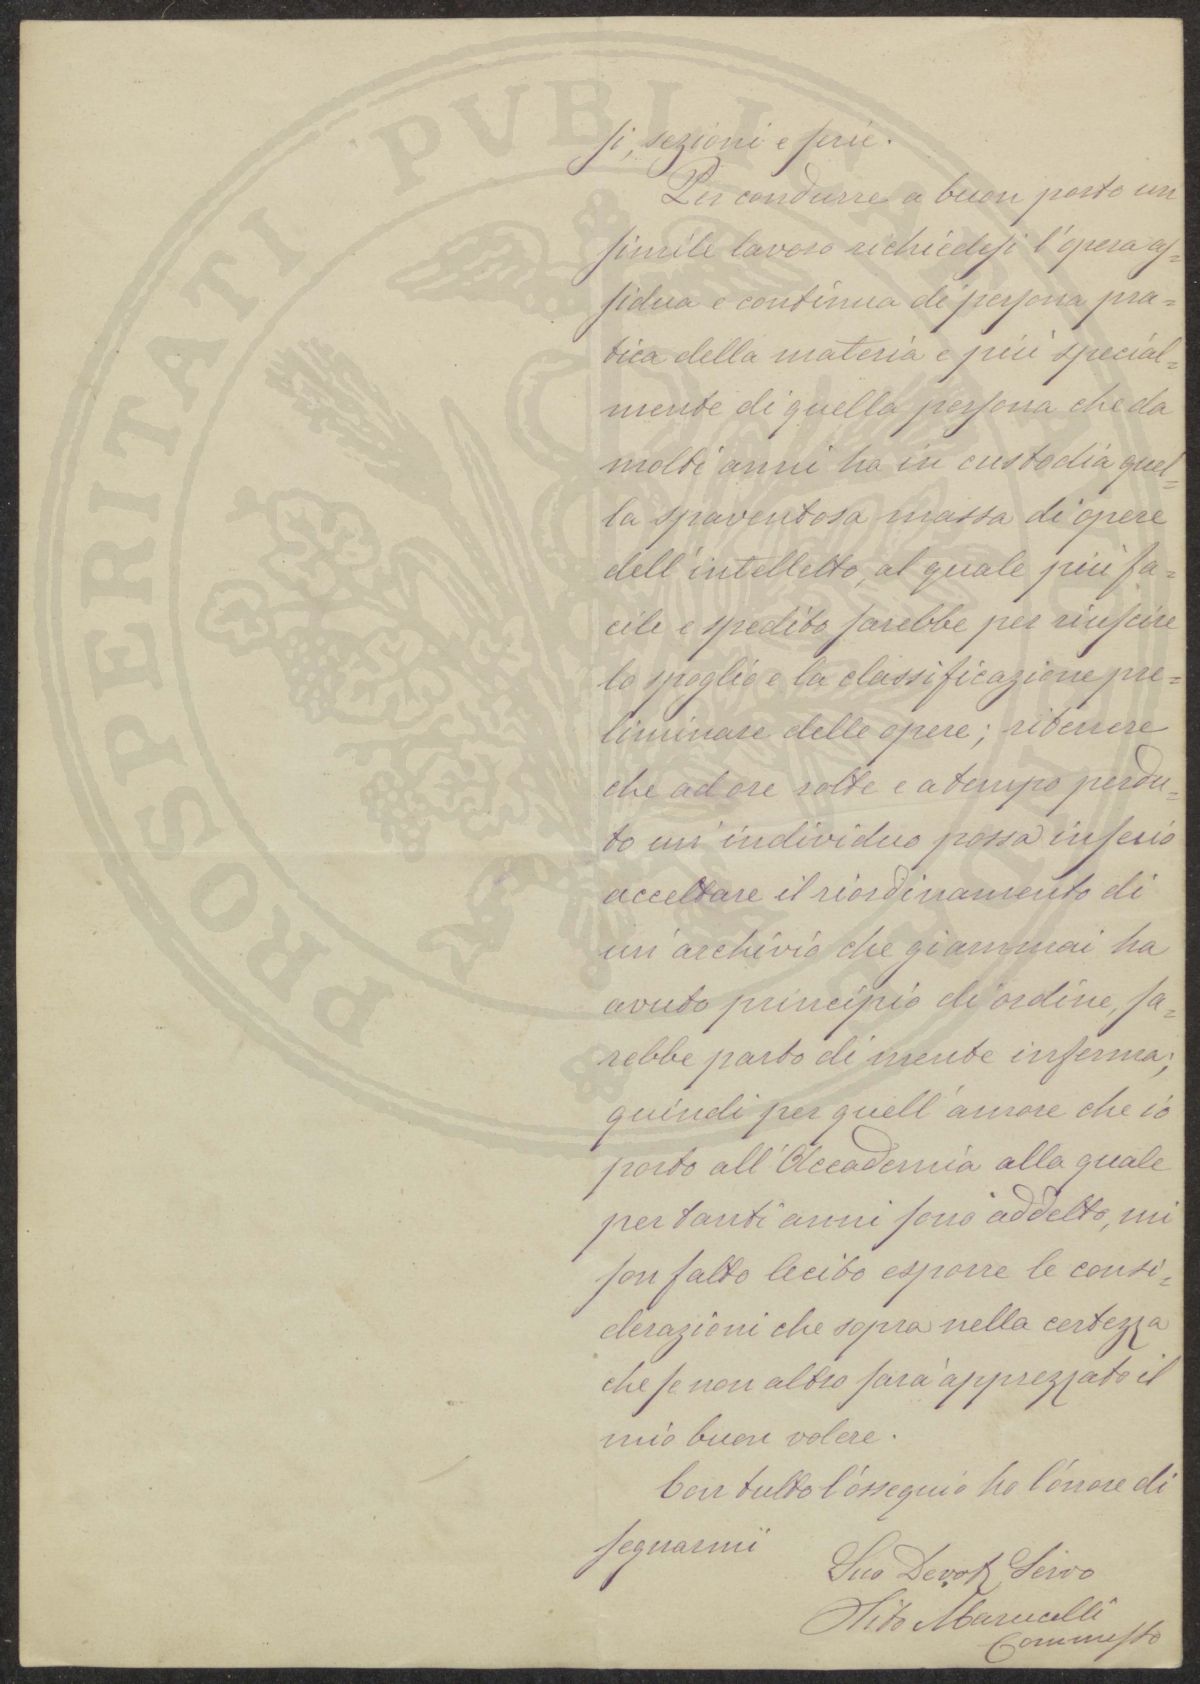 PROSPERITATI PVBLICAE
si, sezioni e serie.
Per condurre a buon porto un
simile lavoro richiedesi l'opera as=
sidua e continua di persona pra=
tica della materia e più special=
mente di quella persona che da
molti anni ha in custodia quel=
la spaventosa massa di opere
dell'intelletto, al quale più fa=
cile e spedito sarebbe per riuscire
lo spoglio e la classificazione pre=
liminare delle opere; ritenere
che ad ore rotte e a tempo perdu=
to un individuo possa in serio
accettare il riordinamento di
un archivio che giammai ha
avuto principio di ordine, sa=
rebbe parto di mente inferma;
quindi per quell'amore che io
porto all'Accademia alla quale
per tanti anni sono addetto, mi
son fatto lecito esporre le consi=
derazioni che sopra nella certezza
che se non altro sarà apprezzato il
mio buon volere.
Con tutto l'ossequio ho l'onore di
segnarmi
Suo Devot Servo
Marucelli
Commesso